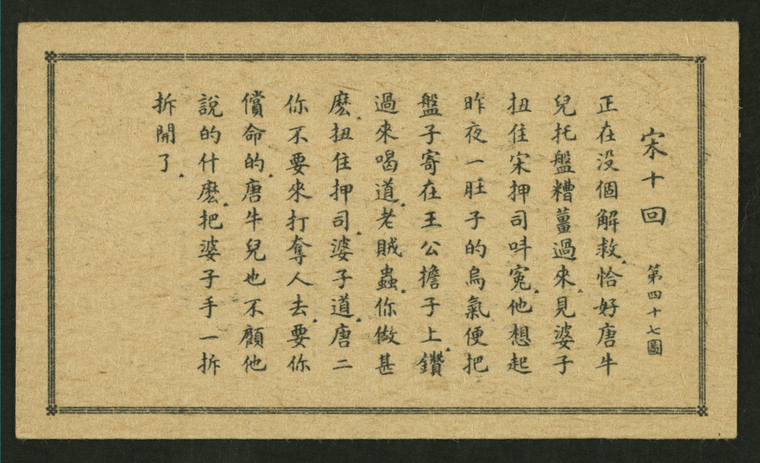 宋十回
第四十七圖
正在没個解救.恰好唐牛
兒托盤糟薑過來.見婆子
扭住宋押司呌寃.他想起
昨夜一肚子的鳥氣.便把
盤子寄在王公擔子上.鑽
過來喝道.老賊蟲.你做甚
麽.扭住押司.婆子道.唐二
你不要來打奪人去.要你
償命的.唐牛兒也不顧他
說的什麽.把婆子手一拆
拆開了.